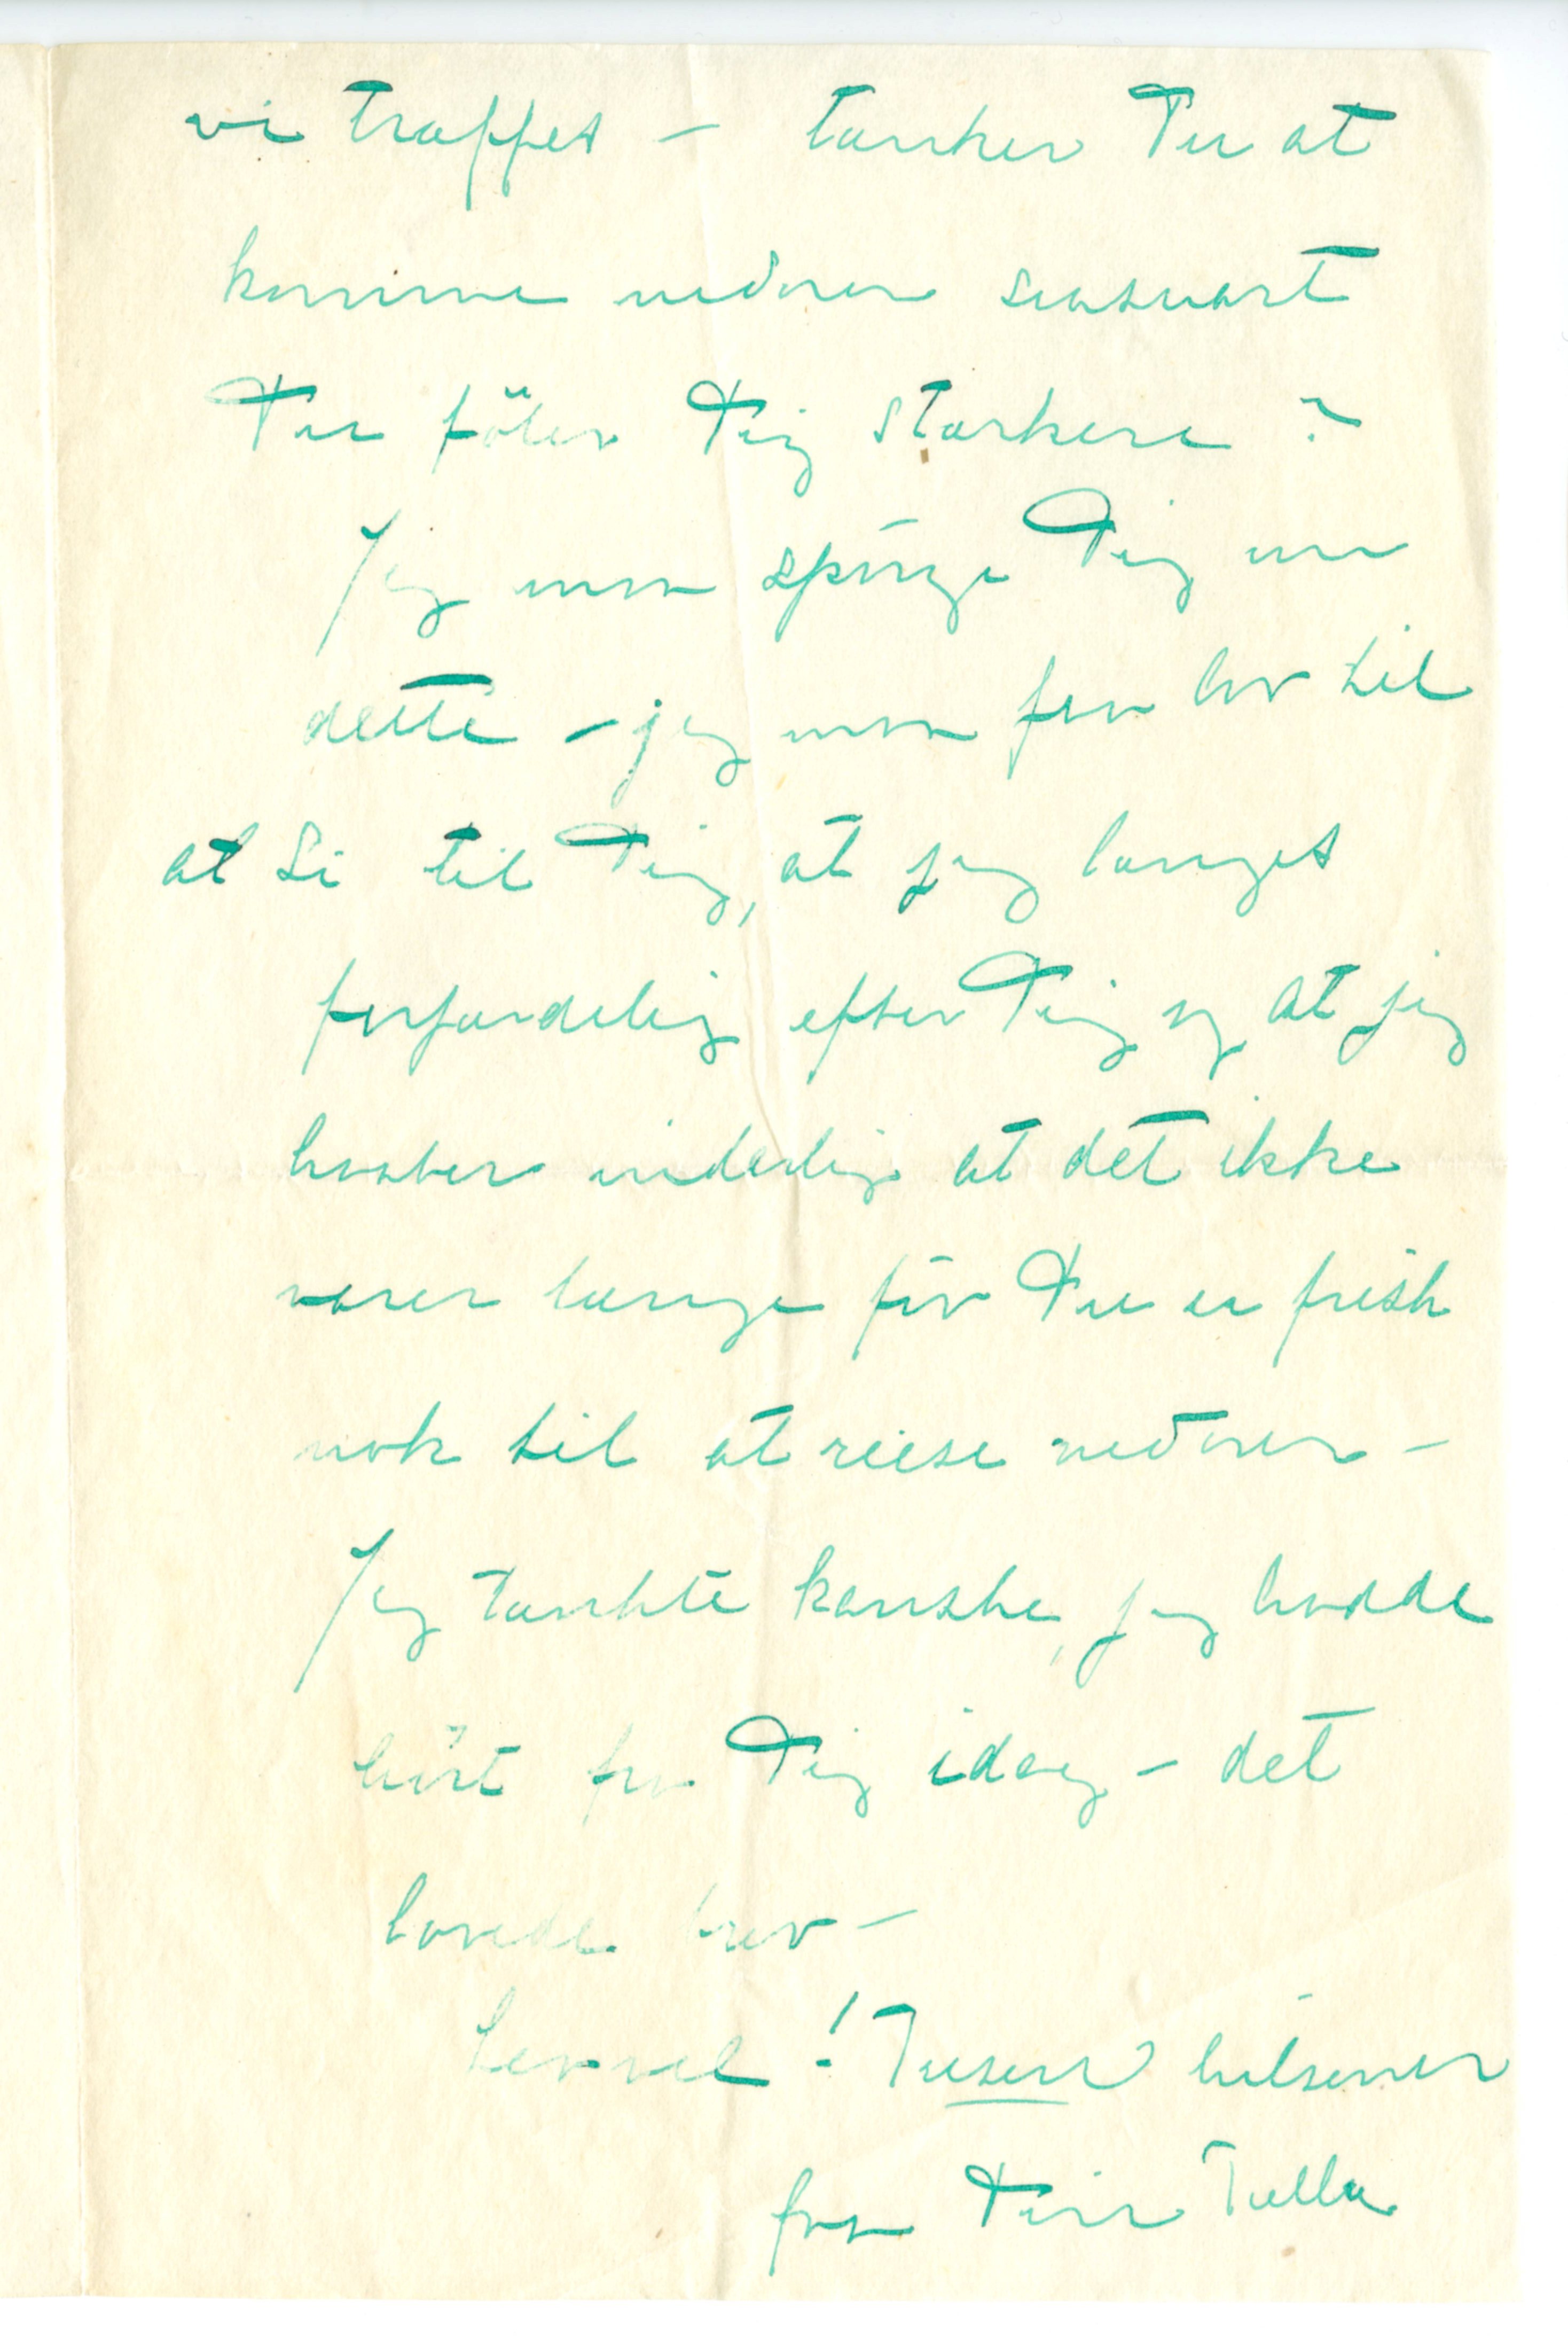 vi traffes – tænker Du at
komme nedover saasnart
Du föler Dig stærkere?
Jeg maa spörge Dig om
dette – jeg maa faa lov til
at si til Dig, at jeg længes
forfærdelig efter Dig og at jeg
haaber inderlig at det ikke
varer længe för Du er frisk
nok til at reise nedover –
Jeg tænkte kanske, jeg hadde
hört fra Dig idag – det
lovede brev –
Levvel! Tusen hilsener
fra Din Tulla